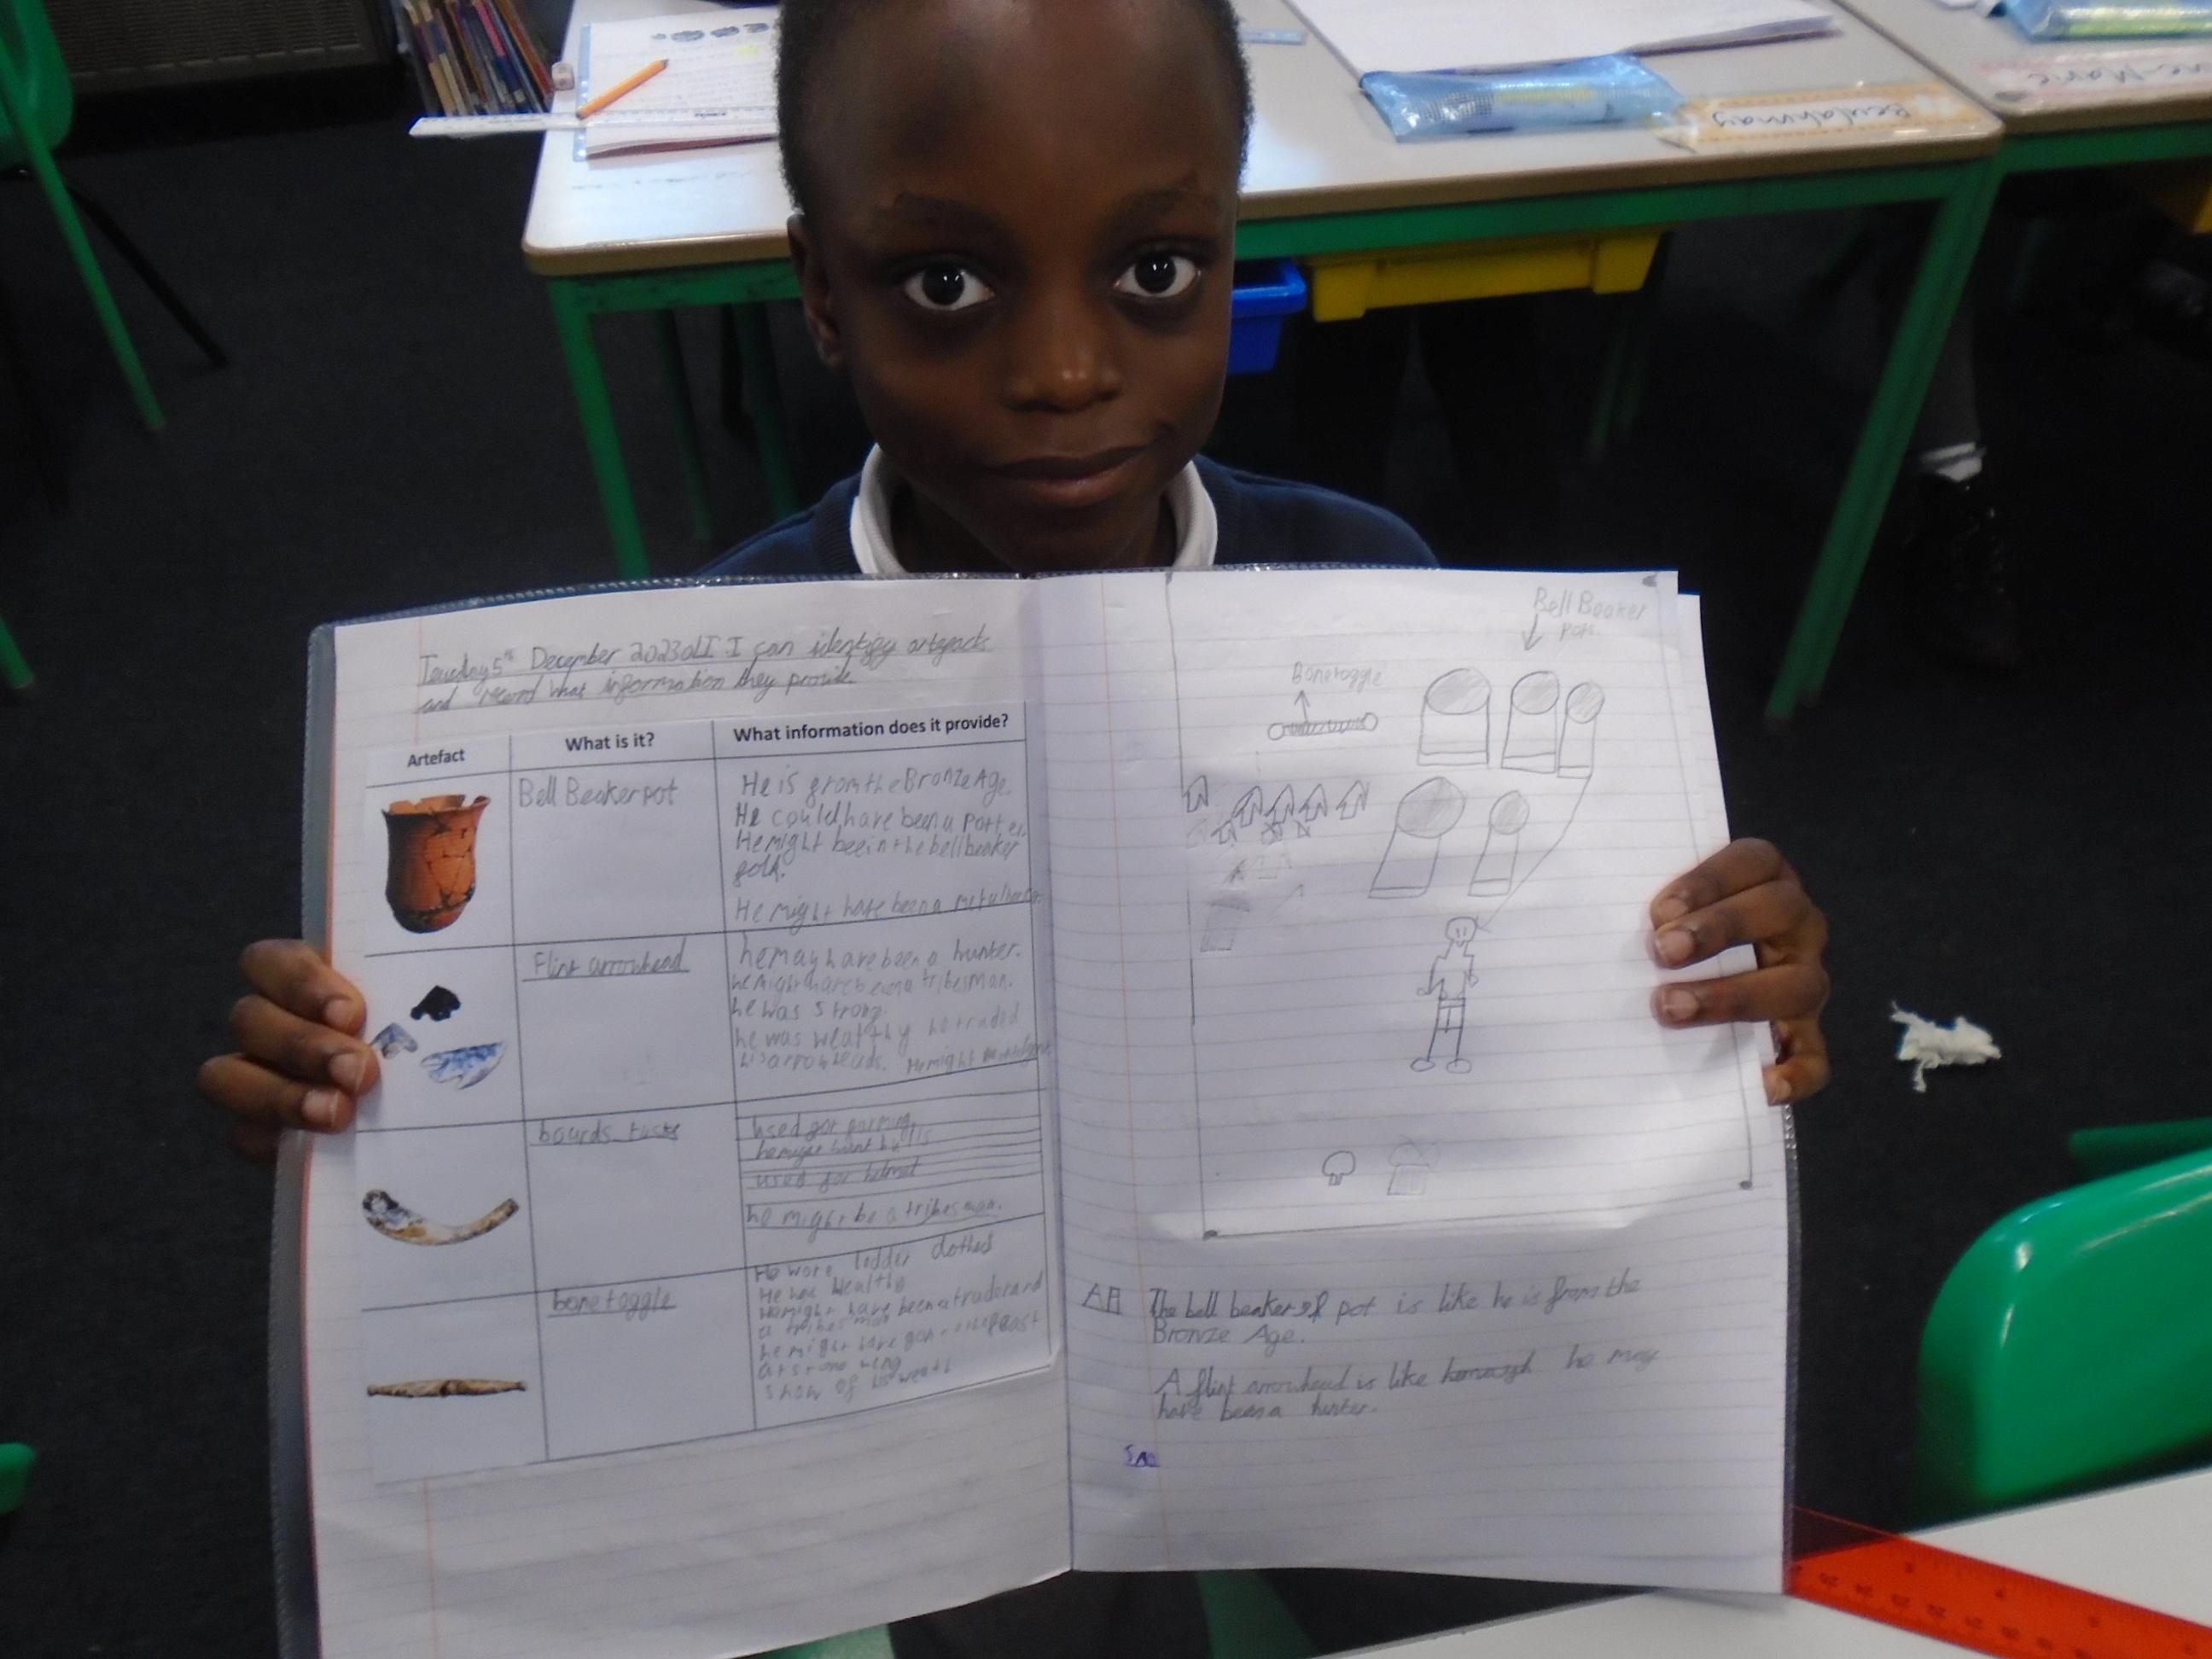 Teusday 5th December 2023 LI I can identify artefacts
and record what information they provide
Artefact
What is it?
What information does it provide?
Bell Beaker pot
He is from the Bronze Age.
He could have been a potter.
He might be in the bell beaker
folk.
He might have been a
Flint arrowhead
he may have been a hunter.
he might have been a tribesman.
he was strong.
he was wealthy he traded
his arrowheads. He might
bourds tusks
used for farming
he might hunt
used for helmet
he might be a tribesman.
bone toggle
He wore ledder clothes
He was wealthy
He might have been a trader and
a tribes man
he might have
show of his wealth
Bell Beaker
pots.
Bone toggle
AA The bell beaker pot is like he is from the
Bronze Age.
A flint arrowhead is like he may
have been a hunter.
Beulahmay